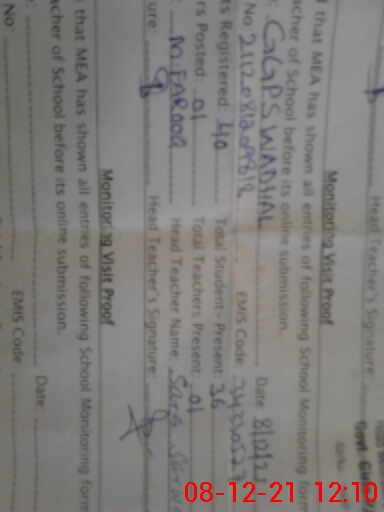 Head Teacher's Signature:
Monitoring Visit Proof
that MEA has shown all entries of following School Monitoring form
acher of School before its online submission.
: GGPS WADHAL Date: 8/12/21
No: EMIS Code:
ts Registered: 40 Total Student- Present 36
rs Posted: 01 Total Teachers Present: 01
: M. FAROOQ Head Teacher Name: Sara
ure Head Teacher's Signature:
Monitoring Visit Proof
that MEA has shown all entries of following School Monitoring form
acher of School before its online submission.
: Date
No EMIS Code
08-12-21 12:10